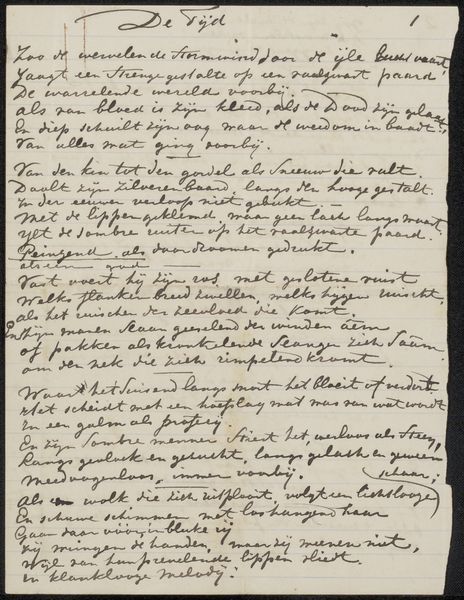 De Tijd
1
Zoo de wervelende Stormwind door de ijle lucht vaart
Jaagt een Strenge gestalte op een raafzwart paard
De warrelende wereld voorbij.
Als van bloed is zijn kleed, als de Dood zijn gelaat
En diep schuilt zijn oog waar de weedom in baadt
Van alles wat ging voorbij.
Van den kin tot den gordel als Sneeuw die valt.
Daalt zijn zilveren baard, langs den hooge gestalt.
In der eeuwen verloop niet gebukt. —
Met de lippen geklemd, maar geen lach langs
IJlt de sombre ruiter op het raafzwarte paard.
Peinzend, als door droomen gedrukt.
als een god
Vast voert hij zijn ros met geslotene vuist
Welks flanken breed zwellen, welks hijgen ruischt,
als het ruischen der zeevloed die komt.
En zijn manen slaan geeselend der winden
of pakken als kronkelende Slangen zich Saâm
om den nek die zich rimpelend kromt.
Waar het Suisend langs snort het bloeit of verdort
Het scheidt met een hoefslag wat was van wat wordt
In een galm als profecij
En zijn Sombre menner Stiert het, werloos als Steen,
Langs gevloek en gezucht, langs gelach en geween
Meedoogenloos, immer voorbij.
Als wolk die zich uitplooit, volgt een lichtlooze schaar,
En schauwe schimmen met loshangend haar
Gaan daar vóór in bluke rij
Zij wringen de handen, maar zij weenen niet,
Wijl van hun prevelende lippen vliedt.
In klanklooze melodij: